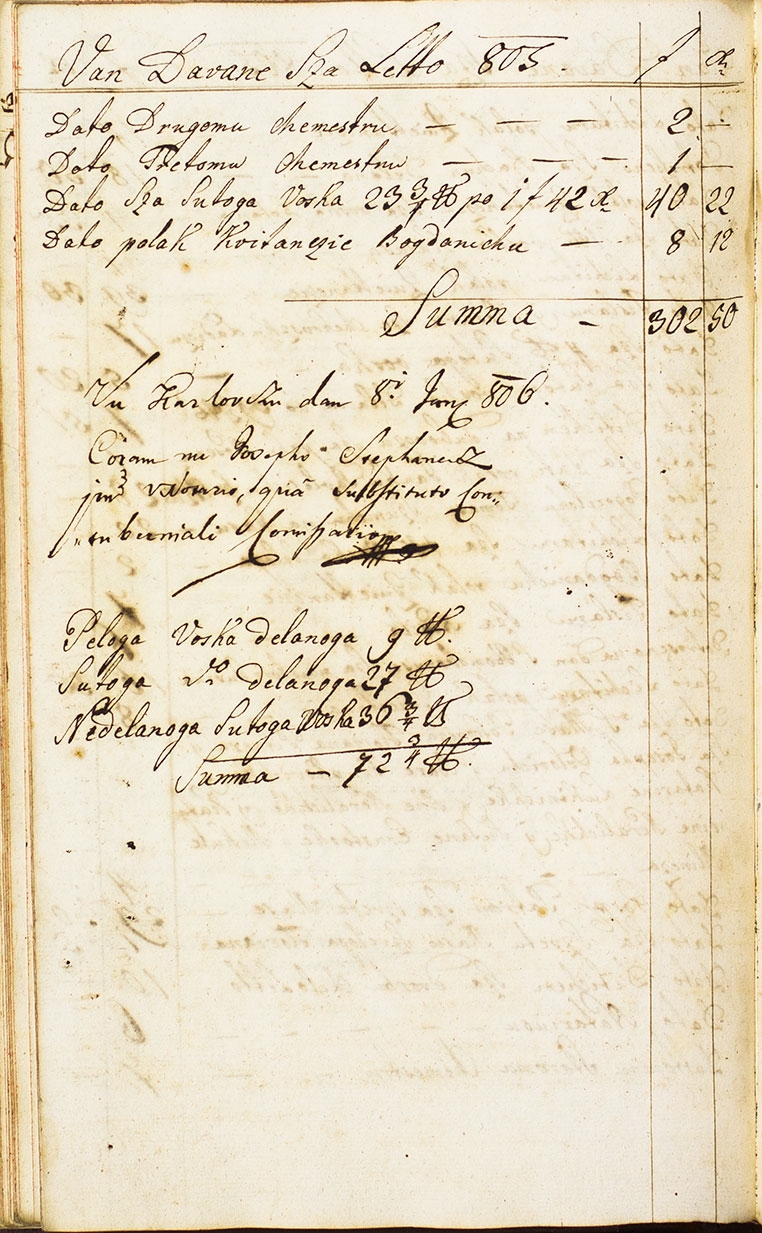 Van Davane Sza Letto 805. f xr
Dato Drugomu Chemestru — — — 2 —
Dato Tretomu Chemestru — — — 1 —
Dato Sza Sutoga Voska 23 3/4 ℔ po 1 f 42 xr 40 22
Dato polak Kvitanczie Bogdanichu — 8 12
Summa — 302 50
Vu Karlovczu dan 8i Juny 806.
Coram me Josepho Stephanecz
jur Notario, qua Substituto Con„
„tuberniali Comissario
Peloga Voska delanoga 9 ℔.
Sutoga do delanoga 27 ℔
Nedelanoga Sutoga Voska 36 3/4 ℔
Summa — 72 3/4 ℔.